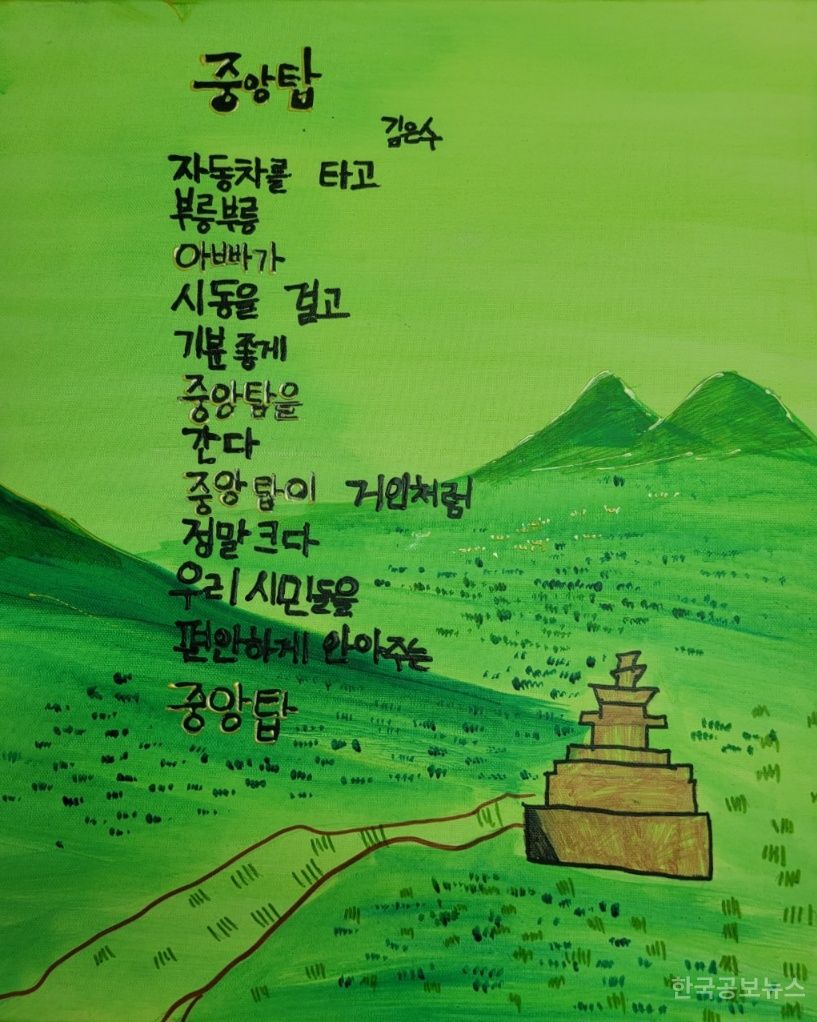 중앙탑
김은수
자동차를 타고
부릉부릉
아빠가
시동을 걸고
기분 좋게
중앙탑을
간다
중앙탑이 거인처럼
정말 크다
우리 시민들을
편안하게 안아주는
중앙탑
한국공보뉴스